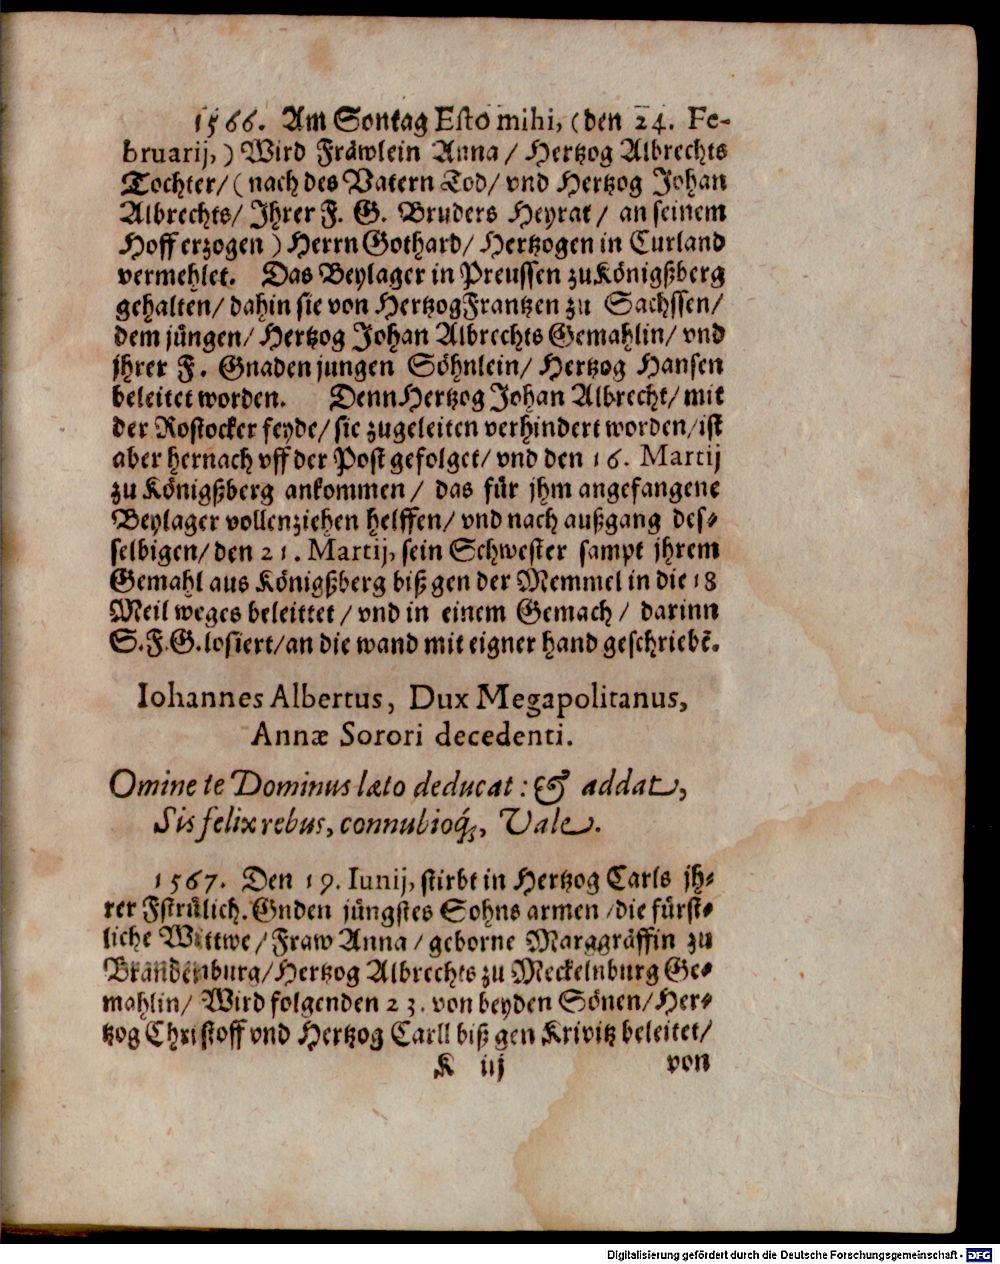 1566. Am Sontag Esto mihi, (den 24. Fe-
bruarij,) Wird Fräwlein Anna / Hertzog Albrechts
Tochter/ (nach des Vatern Tod/ vnd Hertzog Johan
Albrechts/ Jhrer F. G. Bruders Heyrat / an seinem
Hoff erzogen) Herrn Gothard/ Hertzogen in Curland
vermehlet. Das Beylager in Preussen zu Königßberg
gehalten/ dahin sie von Hertzog Frantzen zu Sachssen/
dem jüngen/ Hertzog Johan Albrechts Gemahlin/ vnd
jhrer F. Gnaden jungen Söhnlein/ Hertzog Hansen
beleitet worden. Denn Hertzog Johan Albrecht/ mit
der Rostocker feyde/ sie zugeleiten verhindert worden/ist
aber hernach vff der Post gefolget/ vnd den 16. Martij
zu Königßberg ankommen / das für jhm angefangene
Beylager vollenziehen helffen/ vnd nach außgang des-
selbigen/ den 21. Martij, sein Schwester sampt jhrem
Gemahl aus Königßberg biß gen der Memmel in die 18
Meil weges beleittet / vnd in einem Gemach / darinn
S. F. G. losiert/ an die wand mit eigner hand geschriebẽ.
Iohannes Albertus, Dux Megapolitanus,
Annæ Sorori decedenti.
Omine te Dominus læto deducat : & addat,
Sis felix rebus, connubioq́;, Vale.
1567. Den 19. Iunij, stirbt in Hertzog Carls jh-
rer Fstrülich. Gnden jüngstes Sohns armen /die fürst-
liche Wittwe / Fraw Anna / geborne Marggräffin zu
Brandenburg/ Hertzog Albrechts zu Meckelnburg Ge-
mahlin/ Wird folgenden 23. von beyden Sönen/ Her-
tzog Christoff vnd Hertzog Carll biß gen Krivitz beleitet/
K iij von
Digitalisierung gefördert durch die Deutsche Forschungsgemeinschaft - DFG